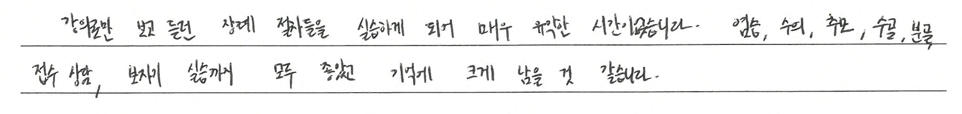 강의로만 보고 듣던 장례 절차들을 실습하게 되어 매우 유익한 시간이였습니다. 염습, 수의, 추모, 수골, 분골,
접수 상담, 보자기 실습까지 모두 좋았고 기억에 크게 남을 것 같습니다.